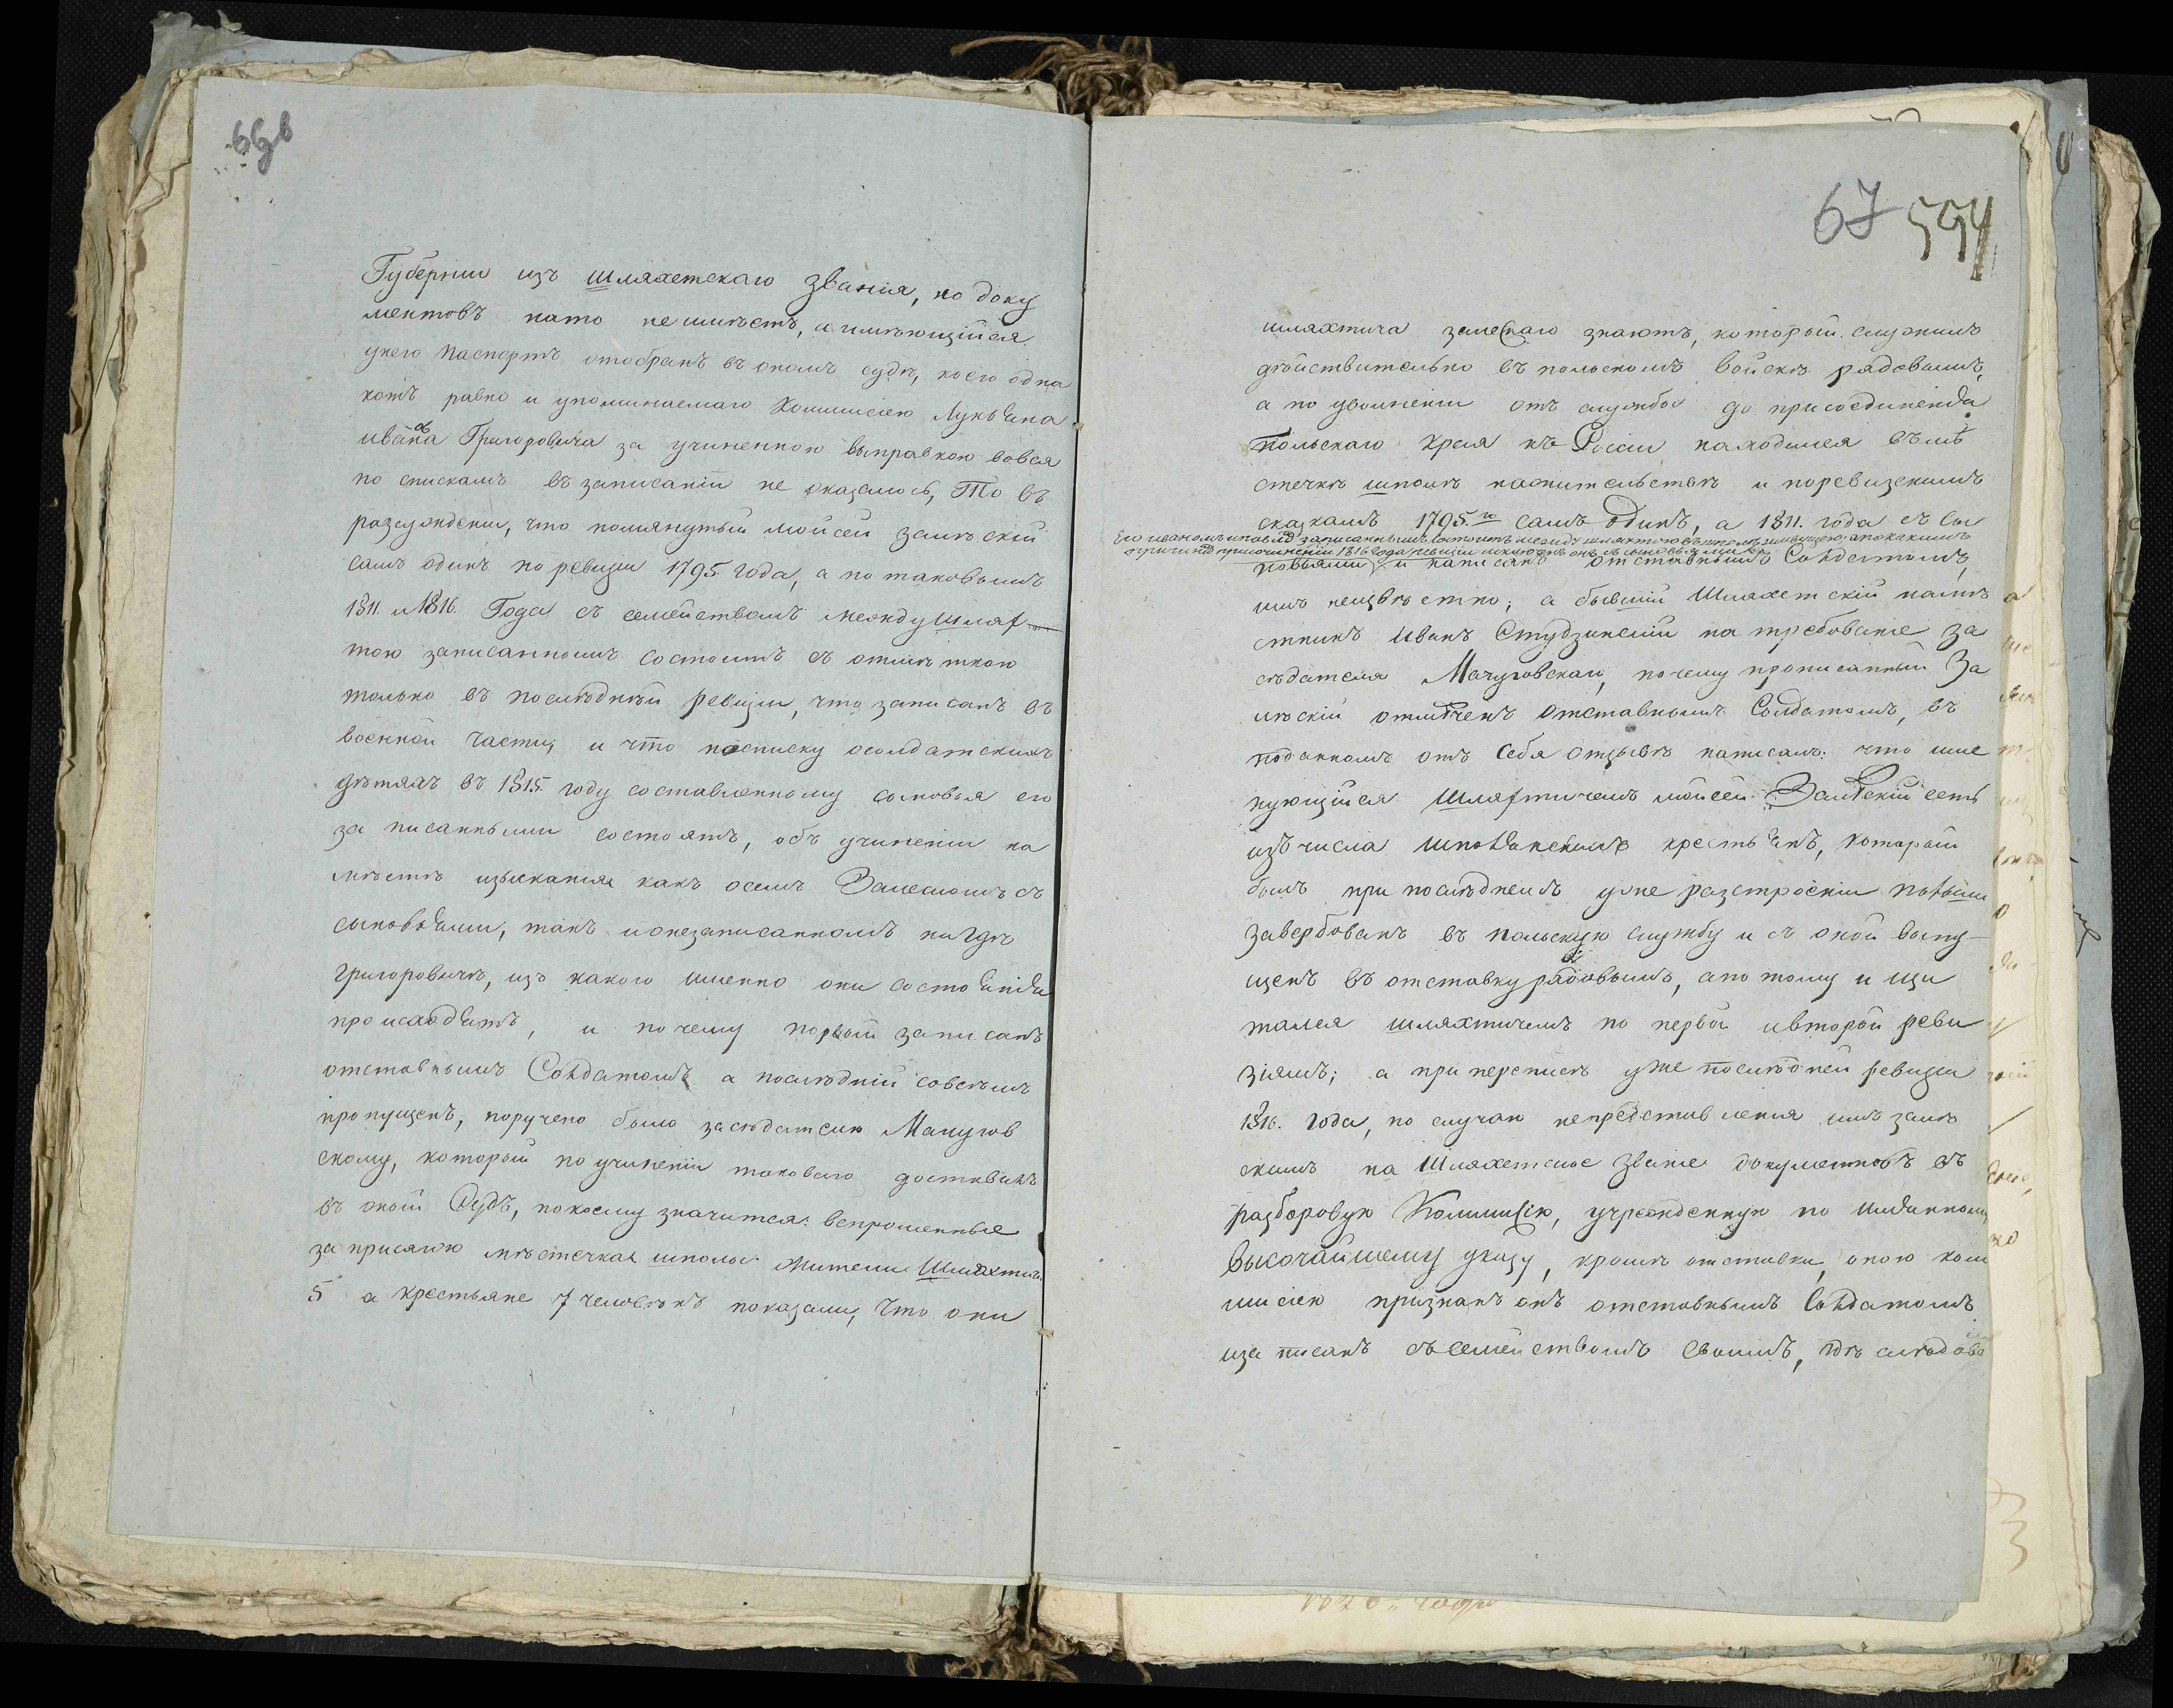 66в
Губернии изъ шляхетскаго званія, но доку
ментовъ нато неимѣетъ, а имѣющійся
унего паспортъ отобранъ въ ономъ судѣ, коего одна
кожъ равно и упоминаемаго Коммисіею Лукьяна
иванова Григоровича за учиненною выправкою вовся
по спискамъ въ записаніи не оказалось, То въ
разсужденіи, что помянутый мойсей замѣскій
самъ одинъ по ревизіи 1795 года, а по таковымъ
1811 и 1816 Года съ семействомъ между шлях
тою записаннымъ состоитъ съ отмѣткою
только въ послѣдней ревизіи, что записанъ въ
военной части, и что посписку осолдатскихъ
дѣтяхъ въ 1815 году составленному сыновья его
за писанными состоятъ, объ учиненіи на
мѣстѣ изысканія какъ осемъ Замескомъ съ
сыновьями, такъ и онезаписанномъ нигдѣ
григоровичѣ, изъ какого именно они состоянія
происходятъ, и почему первый записанъ
отставнымъ Солдатомъ, а послѣдній совсѣмъ
пропущенъ, поручено было засѣдателю Мачугов
скому, который по учиненіи таковаго доставилъ
въ оный Судъ, покоему значится: вспрошенные
за присягою мѣстечка шполы жители Шляхтичи
5 а крестьяне 7 человѣкъ показали, что они
67 594
шляхтича замескаго знаютъ, который служилъ
дѣйствительно въ польскомъ войскѣ рядовымъ,
а по уволненіи отъ службы до присоединенія
Польскаго края къ Россіи находился въмѣ
стечкѣ шполѣ нажительствѣ и поревизскимъ
сказкамъ 1795.го самъ одинъ, а 1811. года съ сы
Его иваномъ записаннымъ состоитъ между шляхтою въ шполѣ живущею, а по какимъ
причинѣ при сочиненіи 1816 года ревизіи исключенъ онъ съ сыновьями
новьями и написанъ отставнымъ Солдатомъ,
имъ неизвѣстно; а бывшій Шляхетскій намѣ
стникъ Иванъ Студзинскій на требованіе За
сѣдателя Мачуговскаго, почему прописанный За
мѣскій отмѣченъ отставнымъ Солдатомъ, въ
поданномъ отъ себя отзывѣ написалъ: что име
нующійся Шляхтичемъ мойсей Замѣскій есть
изъ числа шполянскихъ крестьянъ, который
былъ при послѣднемъ уже разстроеніи польши
завербованъ въ польскую службу и съ оной выпу-
щенъ въ отставку рядовымъ, а по тому и щи
тался шляхтичемъ по первой ивторой реви
зіямъ; а при переписѣ уже послѣдней ревизіи
1816. года, по случаю непредставленія имъ замѣ
скимъ на Шляхетское званіе документовъ въ
разборовую Коммисію, учрежденную по имянному
высочайшему указу, кромѣ отставки, оною ком
мисіею признанъ онъ отставнымъ Солдатомъ
иза писанъ съ семействомъ своимъ, гдѣ слѣдова